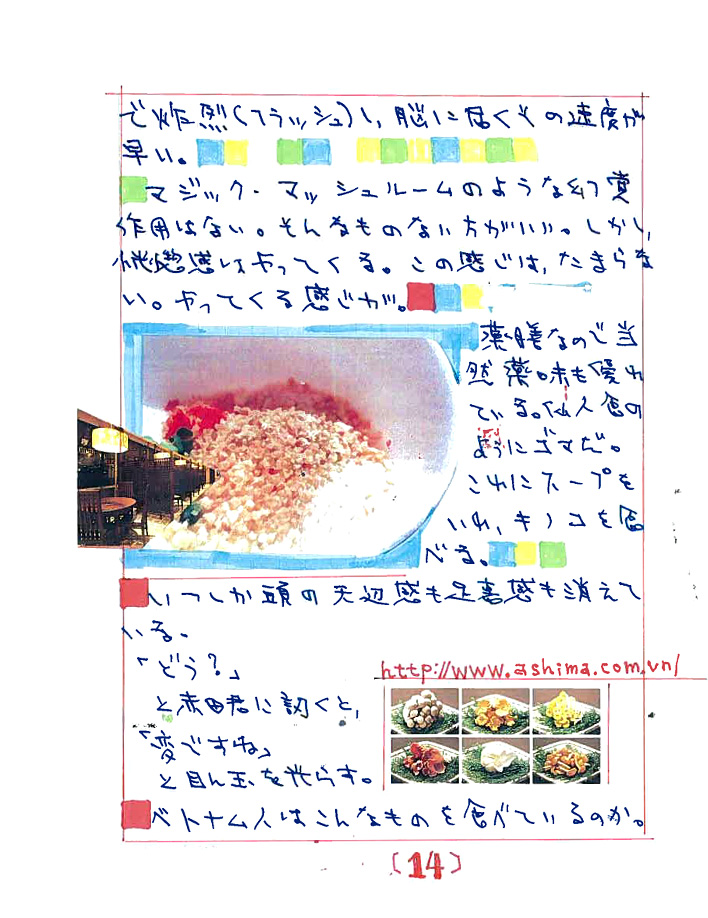 で炸裂(フラッシュ)し、脳に届くその速度が
早い。
マジック・マッシュルームのような幻覚
作用はない。そんなものない方がいい。しかし、
恍惚感はやってくる。この感じは、たまらな
い。やってくる感じが。
薬膳なので当
然薬味も優れ
ている。仙人食の
ようにゴマだ。
これにスープを
いれ、キノコを食
べる。
いつしか頭の天辺感も足裏感も消えて
いる。
「どう?」
http://www.ashima.com.vn/
と赤田君に訊くと、
「変ですね」
と目ん玉を光らす。
ベトナム人はこんなものを食べているのか。
(14)